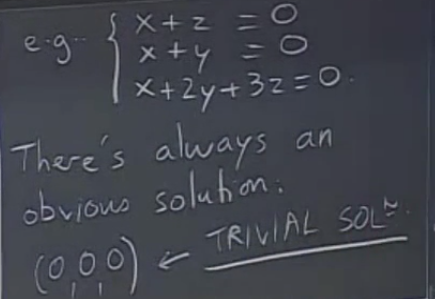 e.g. { x + z = 0
x + y = 0
x + 2y + 3z = 0.
There's always an
obvious solution:
(0,0,0) ← TRIVIAL SOLN.